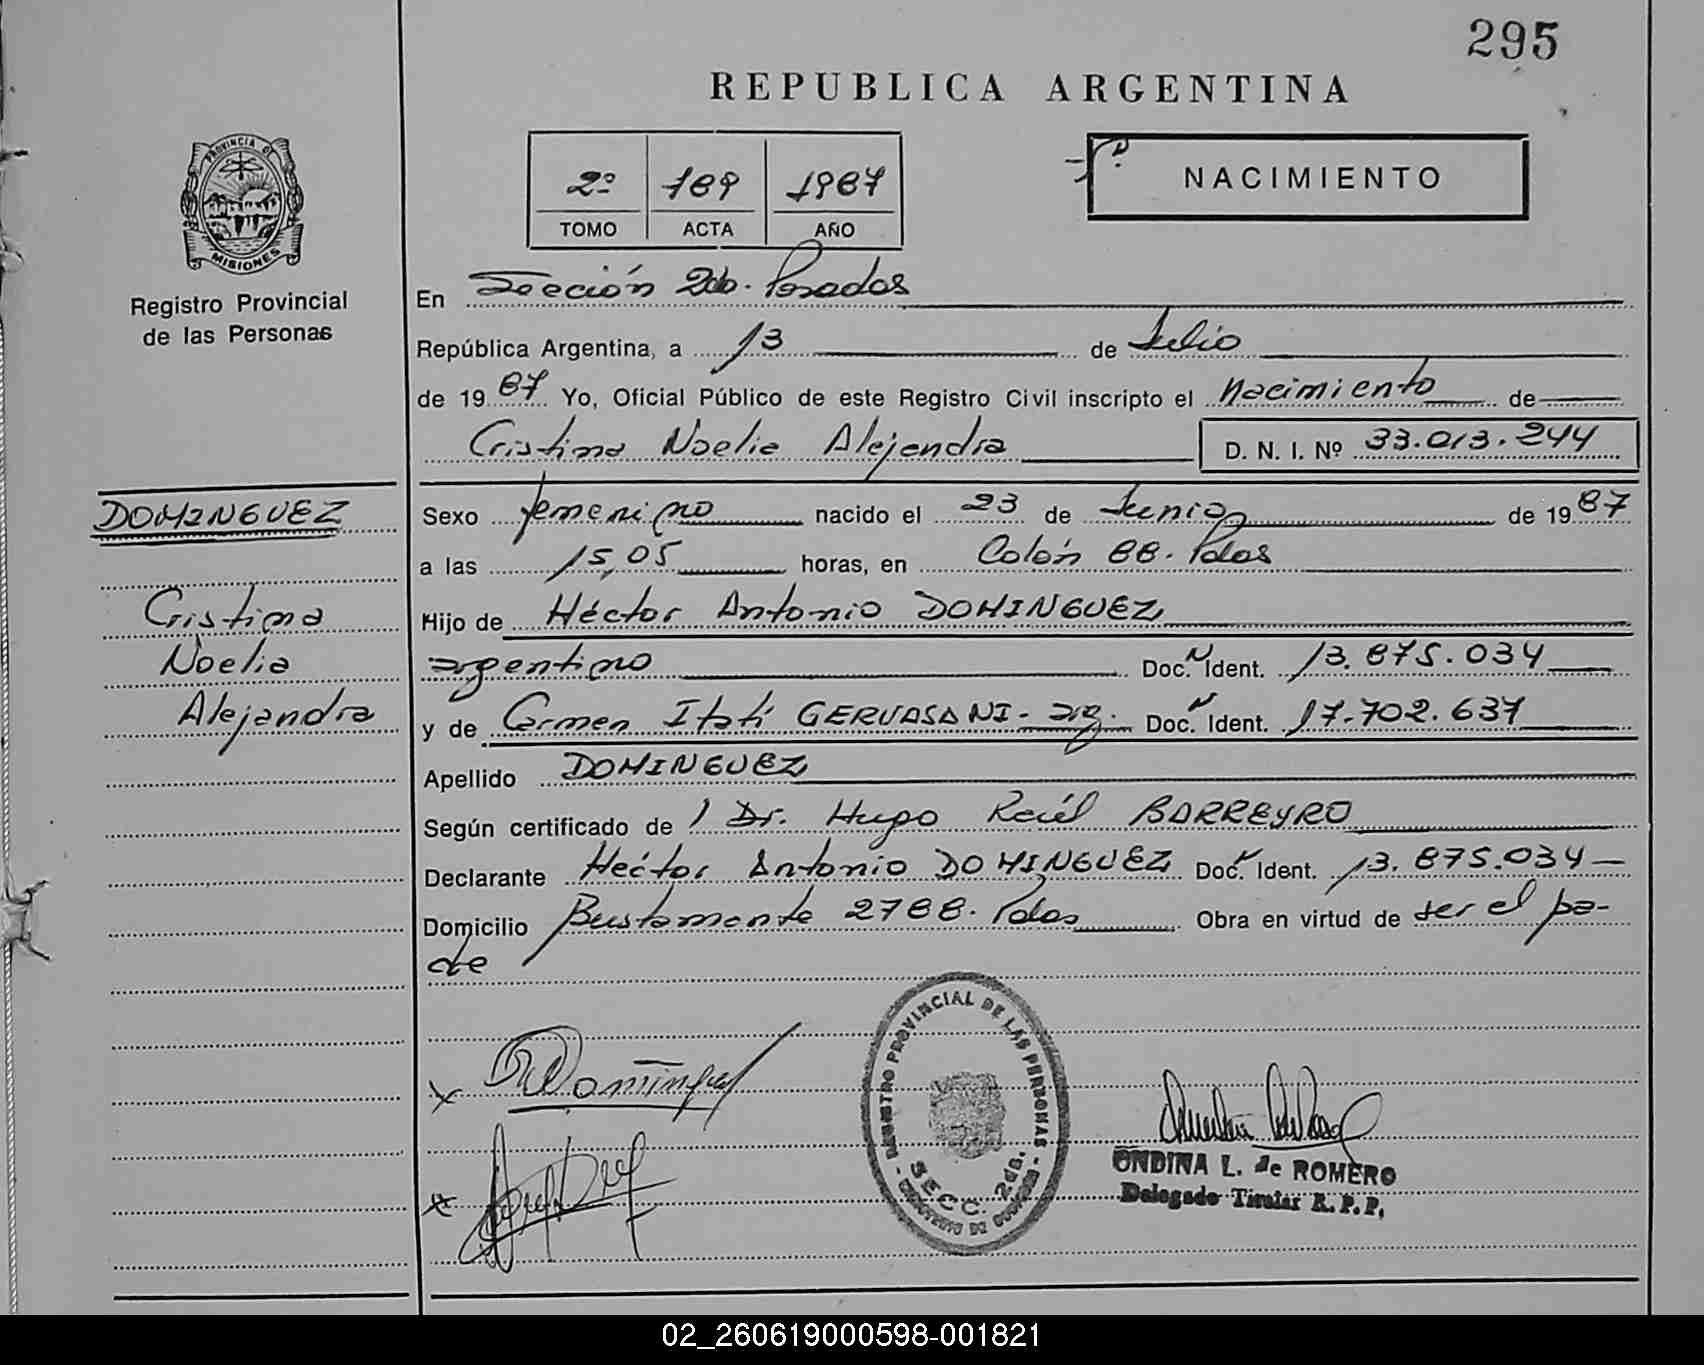 295
REPUBLICA ARGENTINA
2º 189 1987
TOMO ACTA AÑO
NACIMIENTO
PROVINCIA DE
MISIONES
Registro Provincial
de las Personas
En Sección 2da. Posadas
República Argentina, a 13 de Julio
de 1987 Yo, Oficial Público de este Registro Civil inscripto el Nacimiento de
Cristina Noelia Alejandra D. N. I. Nº 33.013.244
DOMINGUEZ
Cristina
Noelia
Alejandra
Sexo femenino nacido el 23 de Junio de 1987
a las 15,05 horas, en Colón 88. Pdas
Hijo de Héctor Antonio DOMINGUEZ
argentino Doc. N Ident. 13.875.034
y de Carmen Itatí GERVASANI - arg. Doc. Ident. 17.702.637
Apellido DOMINGUEZ
Según certificado de 1 Dr. Hugo Raúl BARREYRO
Declarante Héctor Antonio DOMINGUEZ Doc. Ident. 13.875.034
Domicilio Bustamente 2788. Pdas Obra en virtud de ser el pa-
dre
REGISTRO PROVINCIAL DE LAS PERSONAS
SECC. 2da.
ONDINA L. de ROMERO
Delegado Titular R. P. P.
02_260619000598-001821